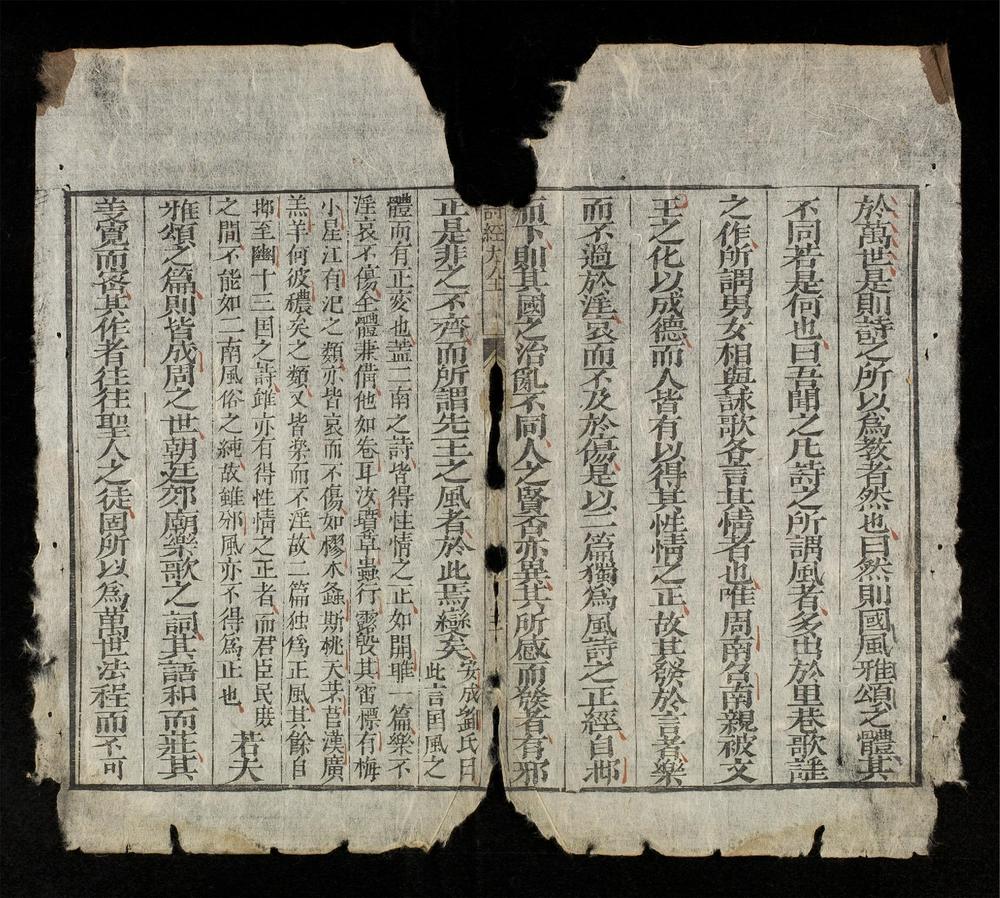 於萬世是則詩之所以爲教者然也曰然則國風雅頌之體其
不同若是何也曰吾聞之凡詩之所謂風者多出於里巷歌謠
之作所謂男女相與詠歌各言其情者也唯周南召南親被文
王之化以成德而人皆有以得其性情之正故其發於言者樂
而不過於淫哀而不及於傷是以二篇獨爲風詩之正經自邶
而下則其國之治亂不同人之賢否亦異其所感而發者有邪
詩經大全
正是非之不齊而所謂先王之風者於此焉變矣
安成劉氏曰
此言囯風之
體而有正変也蓋二南之詩皆得性情之正如関雎一篇樂不
淫哀不傷全體兼備他如卷耳汝墳草蟲行露殷其雷摽有梅
小星江有汜之類亦皆哀而不傷如樛木螽斯桃夭芣苢漢廣
羔羊何彼穠矣之類又皆楽而不淫故二篇独爲正風其餘自
邶至豳十三囯之詩雖亦有得性情之正者而君臣民庻
之間不能如二南風俗之純故雖邪風亦不得爲正也
若夫
雅頌之篇則皆成周之世朝廷郊廟樂歌之詞其語和而莊其
義寛而密其作者往往聖人之徒固所以爲萬世法程而不可